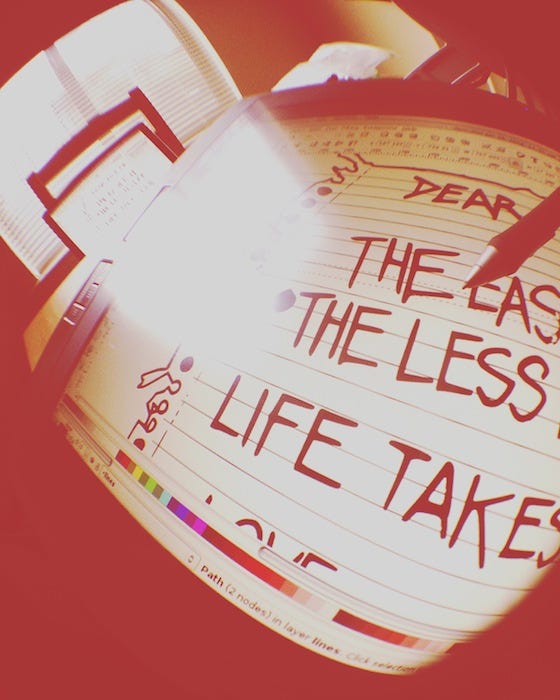 DEAR
THE EAS
THE LESS
LIFE TAKES
LOVE
Path (2 nodes) in layer lines. Click selection